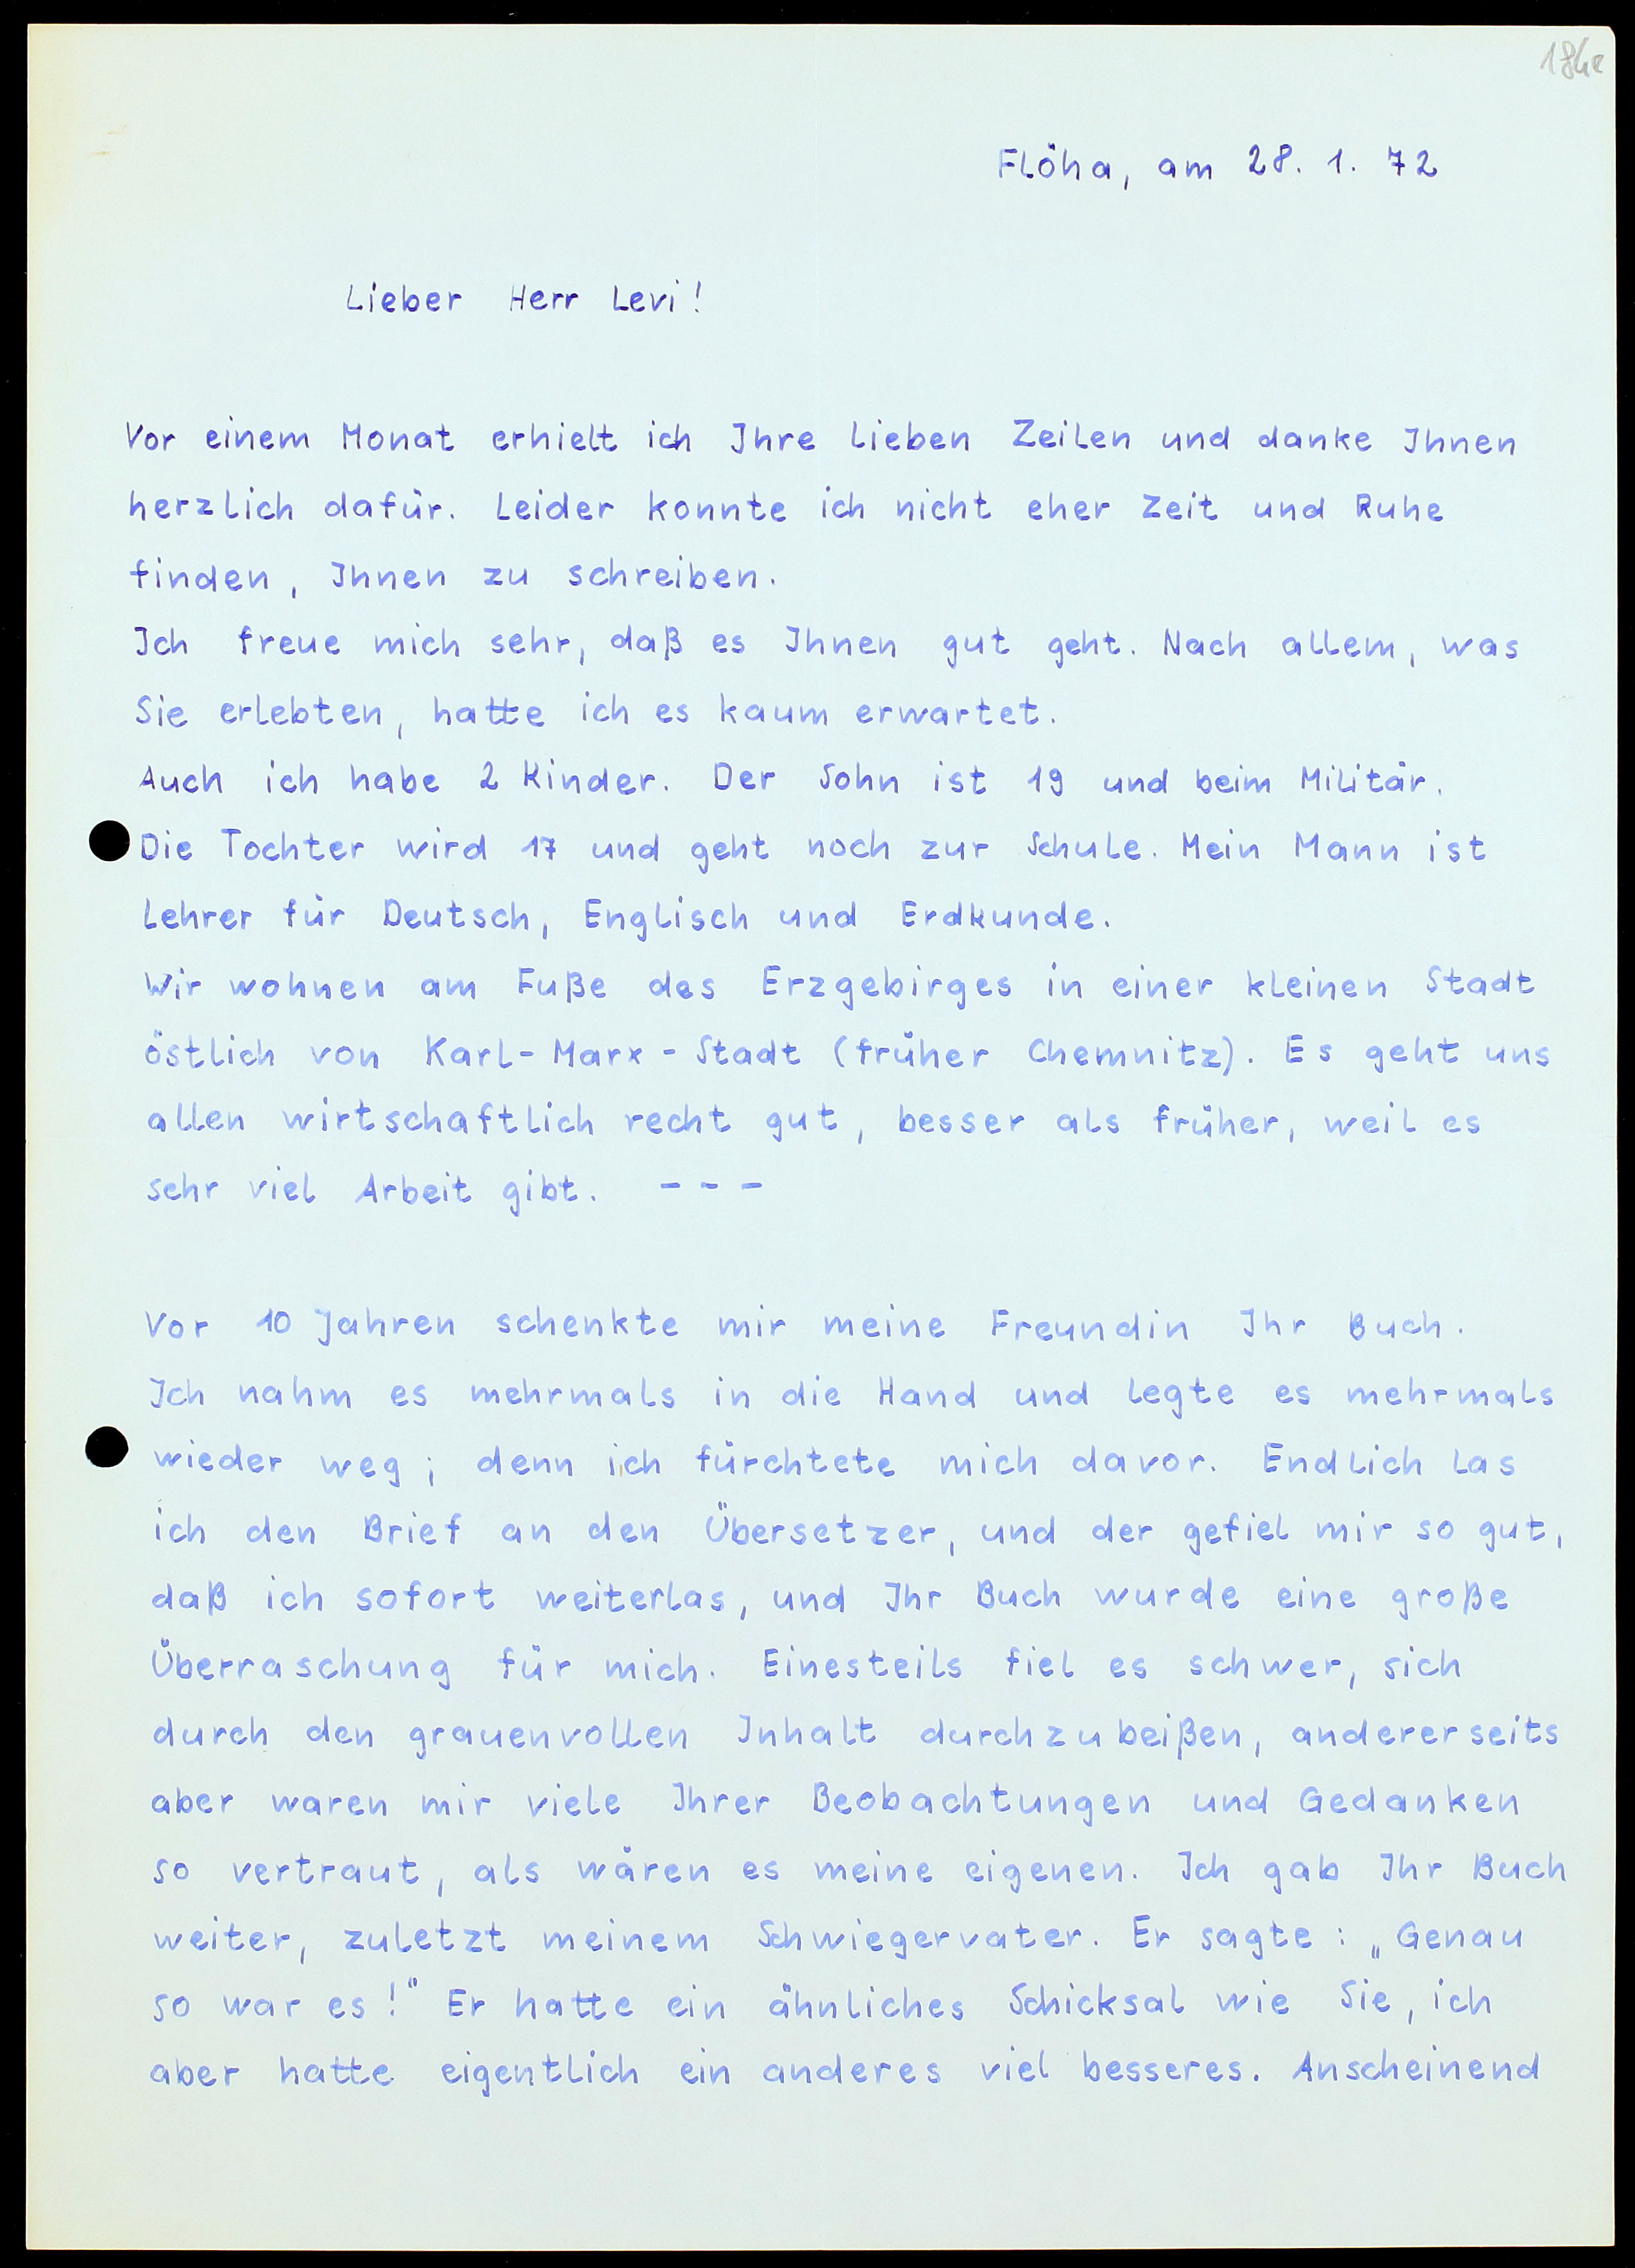 Flöha, am 28. 1. 72
Lieber Herr Levi!
Vor einem Monat erhielt ich Ihre lieben Zeilen und danke Ihnen
herzlich dafür. Leider konnte ich nicht eher Zeit und Ruhe
finden, Ihnen zu schreiben.
Ich freue mich sehr, daß es Ihnen gut geht. Nach allem, was
Sie erlebten, hatte ich es kaum erwartet.
Auch ich habe 2 Kinder. Der Sohn ist 19 und beim Militär.
Die Tochter wird 17 und geht noch zur Schule. Mein Mann ist
Lehrer für Deutsch, Englisch und Erdkunde.
Wir wohnen am Fuße des Erzgebirges in einer kleinen Stadt
östlich von Karl-Marx-Stadt (früher Chemnitz). Es geht uns
allen wirtschaftlich recht gut, besser als früher, weil es
sehr viel Arbeit gibt. - - -
Vor 10 Jahren schenkte mir meine Freundin Ihr Buch.
Ich nahm es mehrmals in die Hand und legte es mehrmals
wieder weg; denn ich fürchtete mich davor. Endlich las
ich den Brief an den Übersetzer, und der gefiel mir so gut,
daß ich sofort weiterlas, und Ihr Buch wurde eine große
Überraschung für mich. Einesteils fiel es schwer, sich
durch den grauenvollen Inhalt durchzubeißen, andererseits
aber waren mir viele Ihrer Beobachtungen und Gedanken
so vertraut, als wären es meine eigenen. Ich gab Ihr Buch
weiter, zuletzt meinem Schwiegervater. Er sagte: „Genau
so war es!" Er hatte ein ähnliches Schicksal wie Sie, ich
aber hatte eigentlich ein anderes viel besseres. Anscheinend